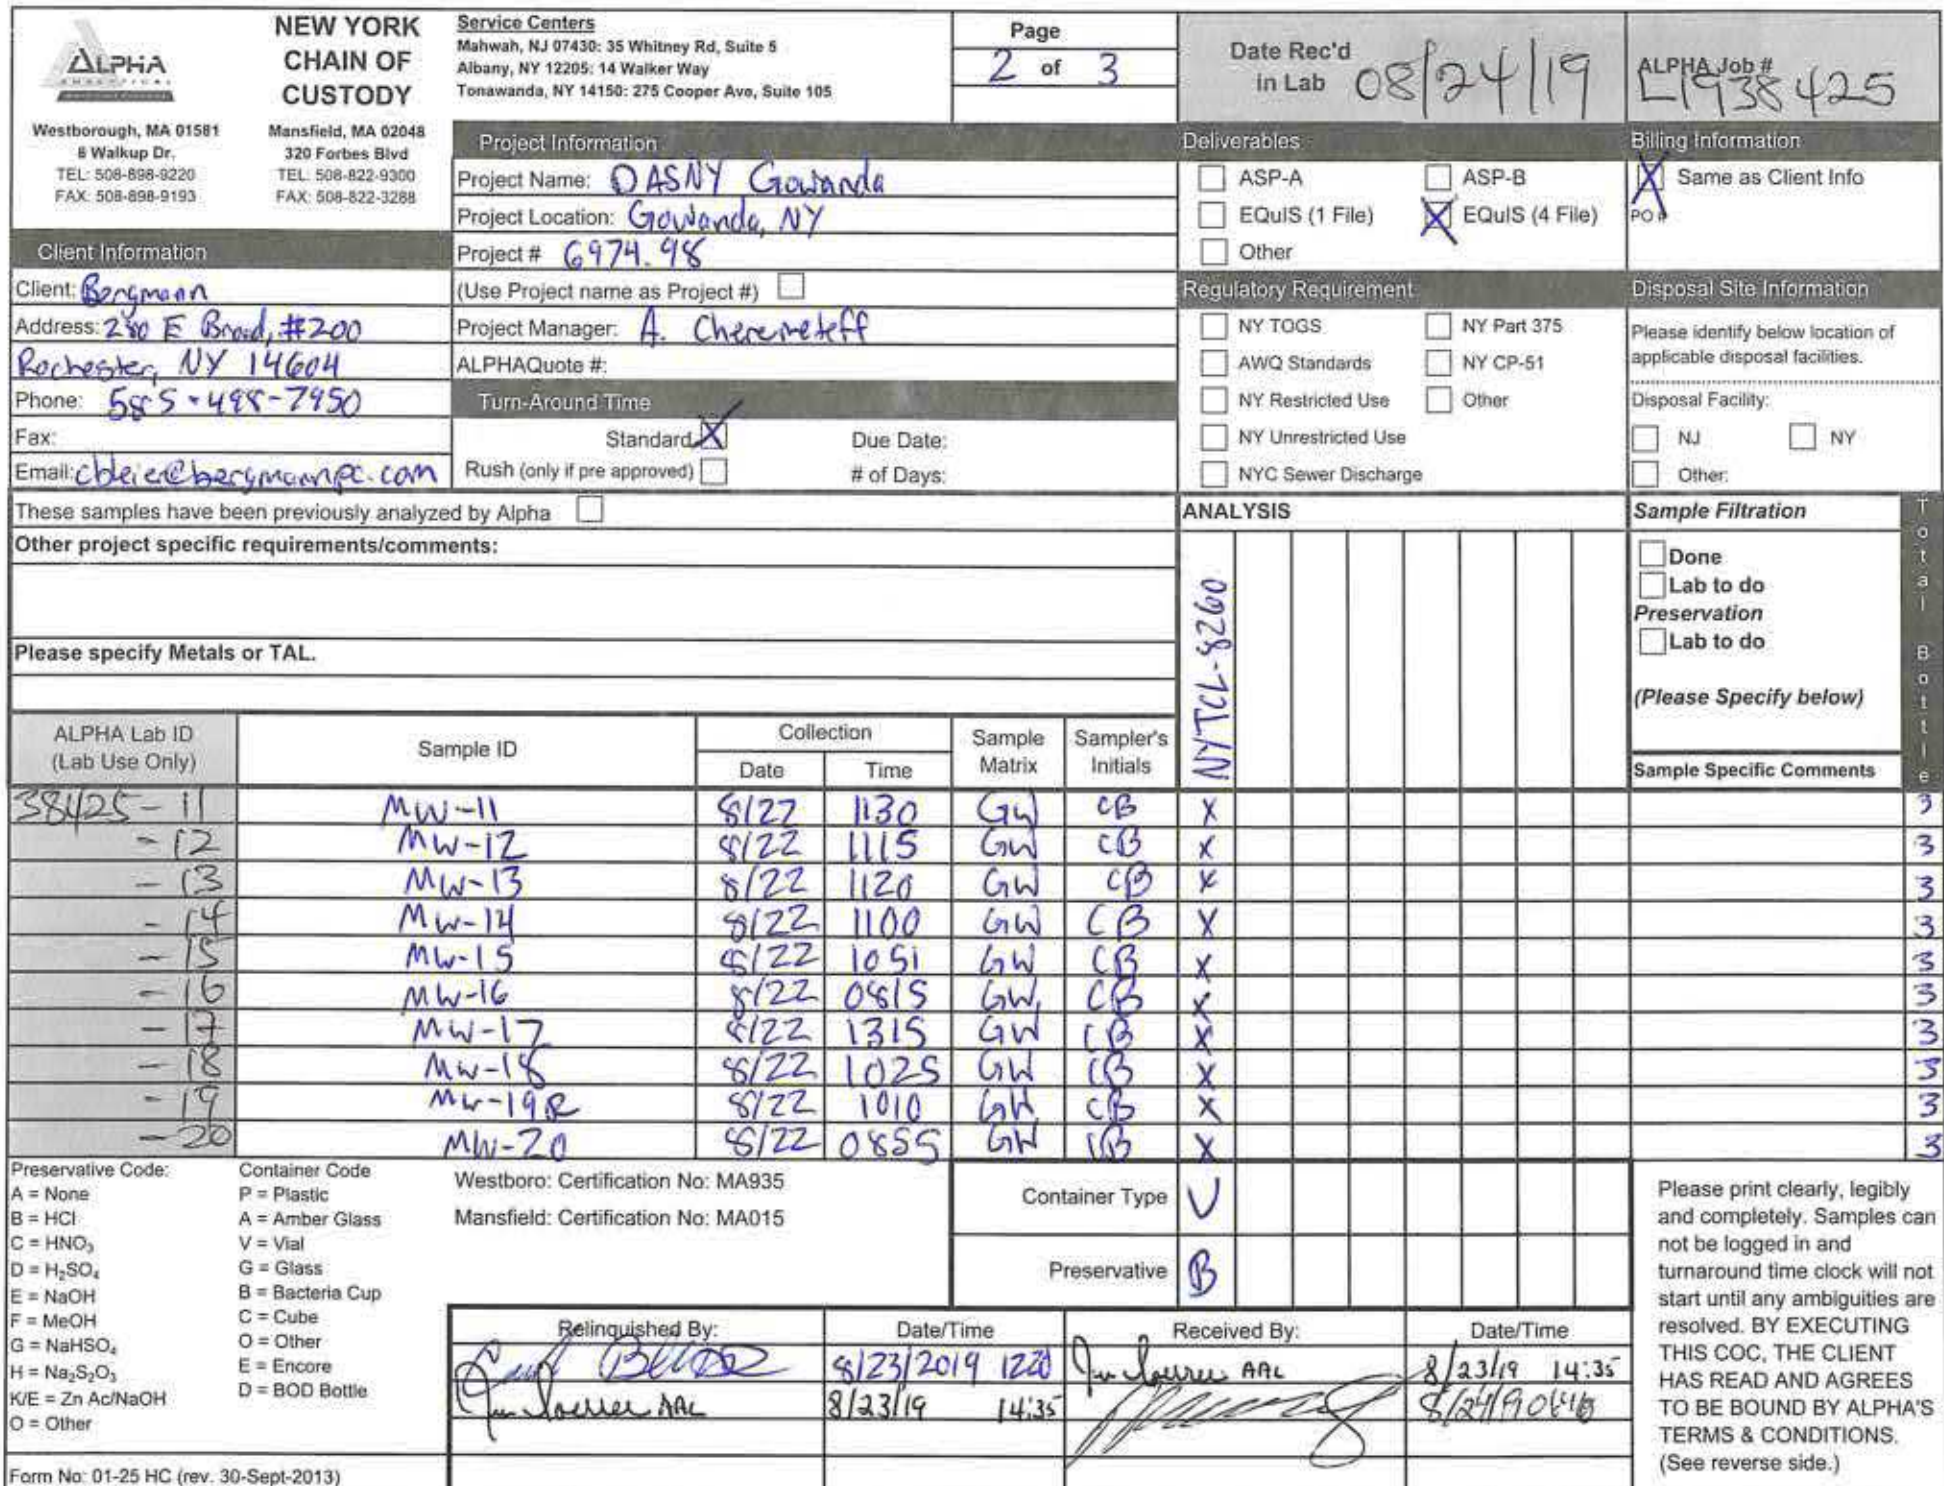 ALPHA
ANALYTICAL
NEW YORK
CHAIN OF
CUSTODY
Westborough, MA 01581
8 Walkup Dr.
TEL: 508-898-9220
FAX: 508-898-9193
Mansfield, MA 02048
320 Forbes Blvd
TEL: 508-822-9300
FAX: 508-822-3288
Service Centers
Mahwah, NJ 07430: 35 Whitney Rd, Suite 5
Albany, NY 12205: 14 Walker Way
Tonawanda, NY 14150: 275 Cooper Ave, Suite 105
Page
2 of 3
Date Rec'd
in Lab 08/24/19
ALPHA Job #
L1938425
Client Information
Client: Bergmann
Address: 280 E Broad, #200
Rochester, NY 14604
Phone: 585-498-7950
Fax:
Email: cbleier@bergmannpc.com
Project Information
Project Name: DASNY Gowanda
Project Location: Gowanda, NY
Project # 6974.98
(Use Project name as Project #)
Project Manager: A. Cheremeteff
ALPHAQuote #:
Turn-Around Time
Standard X Due Date:
Rush (only if pre approved) # of Days:
Deliverables
ASP-A ASP-B
EQuIS (1 File) X EQuIS (4 File)
Other
Regulatory Requirement
NY TOGS NY Part 375
AWQ Standards NY CP-51
NY Restricted Use Other
NY Unrestricted Use
NYC Sewer Discharge
Billing Information
X Same as Client Info
PO #
Disposal Site Information
Please identify below location of
applicable disposal facilities.
Disposal Facility:
NJ NY
Other:
These samples have been previously analyzed by Alpha
Other project specific requirements/comments:
Please specify Metals or TAL.
ANALYSIS
NYTCL-8260
Sample Filtration
Done
Lab to do
Preservation
Lab to do
(Please Specify below)
Total Bottle
ALPHA Lab ID
(Lab Use Only)
Sample ID
Collection
Date Time
Sample
Matrix
Sampler's
Initials
Sample Specific Comments
38425-11 MW-11 8/22 1130 GW CB X 3
-12 MW-12 8/22 1115 GW CB X 3
-13 MW-13 8/22 1120 GW CB X 3
-14 MW-14 8/22 1100 GW CB X 3
-15 MW-15 8/22 1051 GW CB X 3
-16 MW-16 8/22 0815 GW CB X 3
-17 MW-17 8/22 1315 GW CB X 3
-18 MW-18 8/22 1025 GW CB X 3
-19 MW-19R 8/22 1010 GW CB X 3
-20 MW-20 8/22 0855 GW CB X 3
Preservative Code:
A = None
B = HCl
C = HNO₃
D = H₂SO₄
E = NaOH
F = MeOH
G = NaHSO₄
H = Na₂S₂O₃
K/E = Zn Ac/NaOH
O = Other
Container Code
P = Plastic
A = Amber Glass
V = Vial
G = Glass
B = Bacteria Cup
C = Cube
O = Other
E = Encore
D = BOD Bottle
Westboro: Certification No: MA935
Mansfield: Certification No: MA015
Container Type V
Preservative B
Relinquished By: Date/Time Received By: Date/Time
8/23/2019 1220 AAL 8/23/19 14:35
AAL 8/23/19 14:35
Please print clearly, legibly
and completely. Samples can
not be logged in and
turnaround time clock will not
start until any ambiguities are
resolved. BY EXECUTING
THIS COC, THE CLIENT
HAS READ AND AGREES
TO BE BOUND BY ALPHA'S
TERMS & CONDITIONS.
(See reverse side.)
Form No: 01-25 HC (rev. 30-Sept-2013)